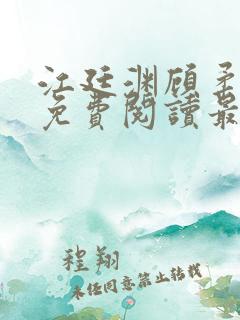 江廷渊顾柔
免費閱讀最
程翔
未经同意禁止转载